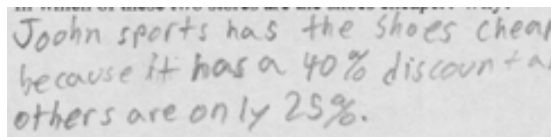 Joohn sports has the shoes cheap
because it has a 40% discount a
others are only 25%.